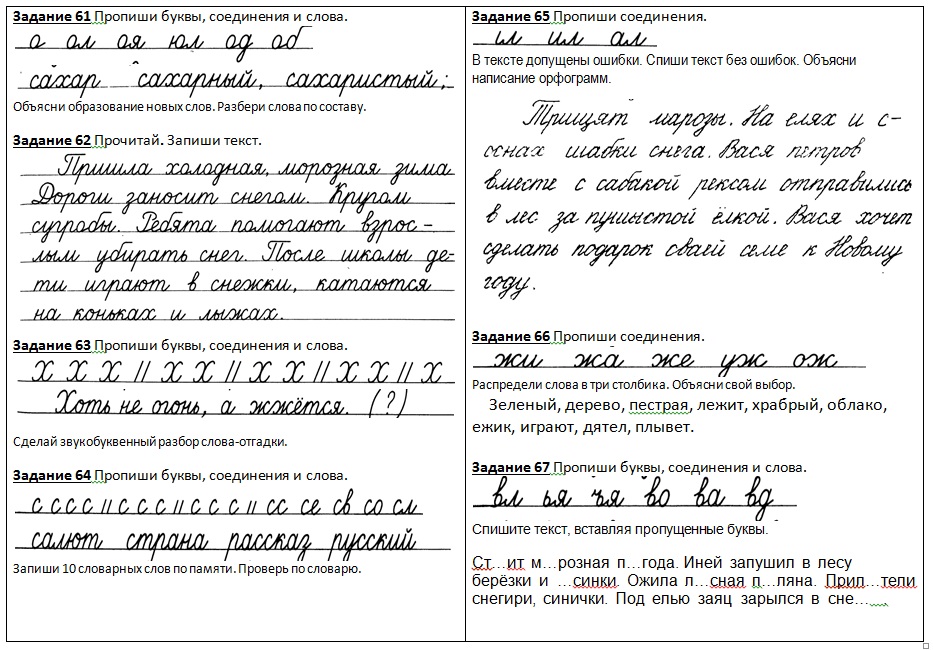 Задание 61 Пропиши буквы, соединения и слова.
о ол оя юл од об
сахар сахарный, сахаристый;
Объясни образование новых слов. Разбери слова по составу.
Задание 62 Прочитай. Запиши текст.
Пришла холодная, морозная зима
Дороги заносит снегом. Кругом
сугробы. Ребята помогают взрос-
лым убирать снег. После школы де-
ти играют в снежки, катаются
на коньках и лыжах.
Задание 63 Пропиши буквы, соединения и слова.
Х Х Х // Х Х // Х Х // Х Х // Х
Хоть не огонь, а жжётся. (?)
Сделай звукобуквенный разбор слова-отгадки.
Задание 64 Пропиши буквы, соединения и слова.
с с с с // с с с // с с с // сс се св со сл
салют страна рассказ русский
Запиши 10 словарных слов по памяти. Проверь по словарю.
Задание 65 Пропиши соединения.
ил ам
В тексте допущены ошибки. Спиши текст без ошибок. Объясни
написание орфограмм.
Трищят марозы. На елях и с-
оснах шабки снега. Вася петров
вместе с сабакой рексом отправились
в лес за пушыстой ёлкой. Вася хочет
сделать подарок сваей семе к Новому
году.
Задание 66 Пропиши соединения.
жи жа же уж ож
Распредели слова в три столбика. Объясни свой выбор.
Зеленый, дерево, пестрая, лежит, храбрый, облако,
ежик, играют, дятел, плывет.
Задание 67 Пропиши буквы, соединения и слова.
вл ья ъя во ва вд
Спишите текст, вставляя пропущенные буквы.
Ст…ит м…розная п…года. Иней запушил в лесу
берёзки и …синки. Ожила л…сная п…ляна. Прил…тели
снегири, синички. Под елью заяц зарылся в сне… .